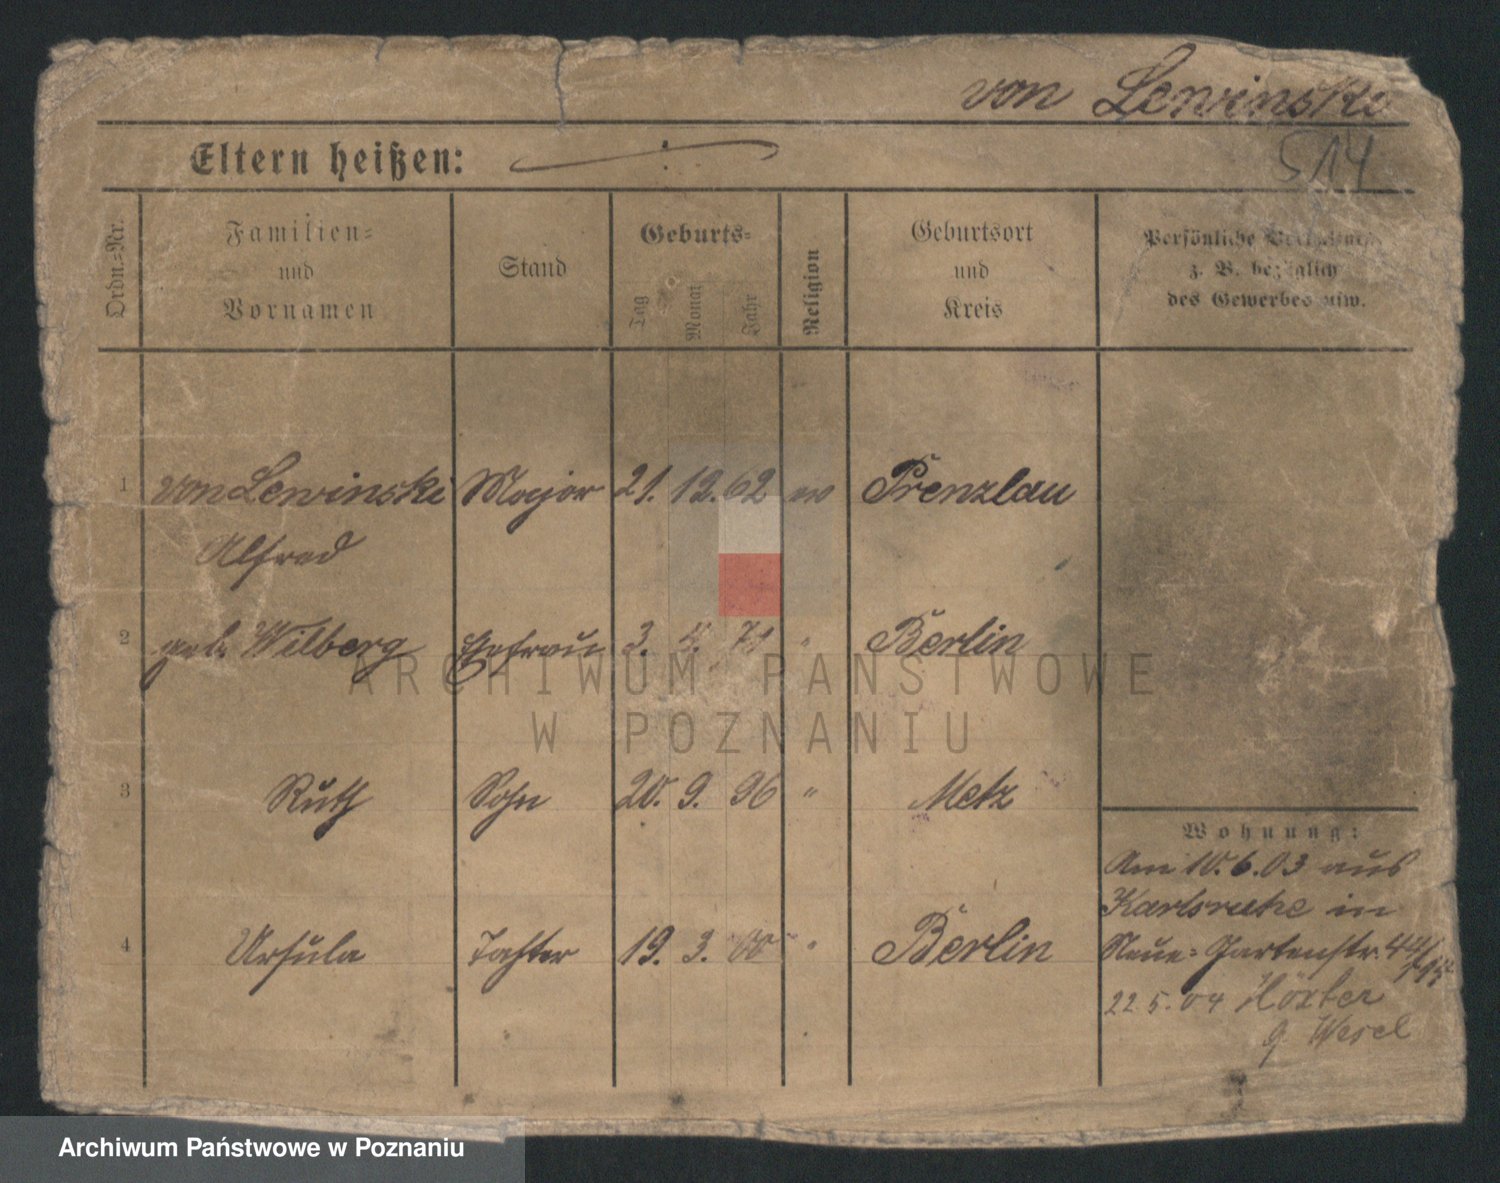 von Lewinski
514
Eltern heißen:
Ordn.=Nr.
Familien=
und
Vornamen
Stand
Geburts=
Tag
Monat
Jahr
Religion
Geburtsort
und
Kreis
Persönliche
z. B. bezüglich
des Gewerbes usw.
1 von Lewinski Major 21. 12. 62 ev Prenzlau
Alfred
2 geb. Wilberg Ehefrau 3. 4. 71 " Berlin
3 Ruth Sohn 20. 9. 96 " Metz
4 Ursula Tochter 19. 3. 00 " Berlin
Wohnung:
Am 10.6.03 aus
Karlsruhe in
Neue=Gartenstr.
22.5.04 Höxter
g. Wesel
ARCHIWUM PAŃSTWOWE
W POZNANIU
Archiwum Państwowe w Poznaniu